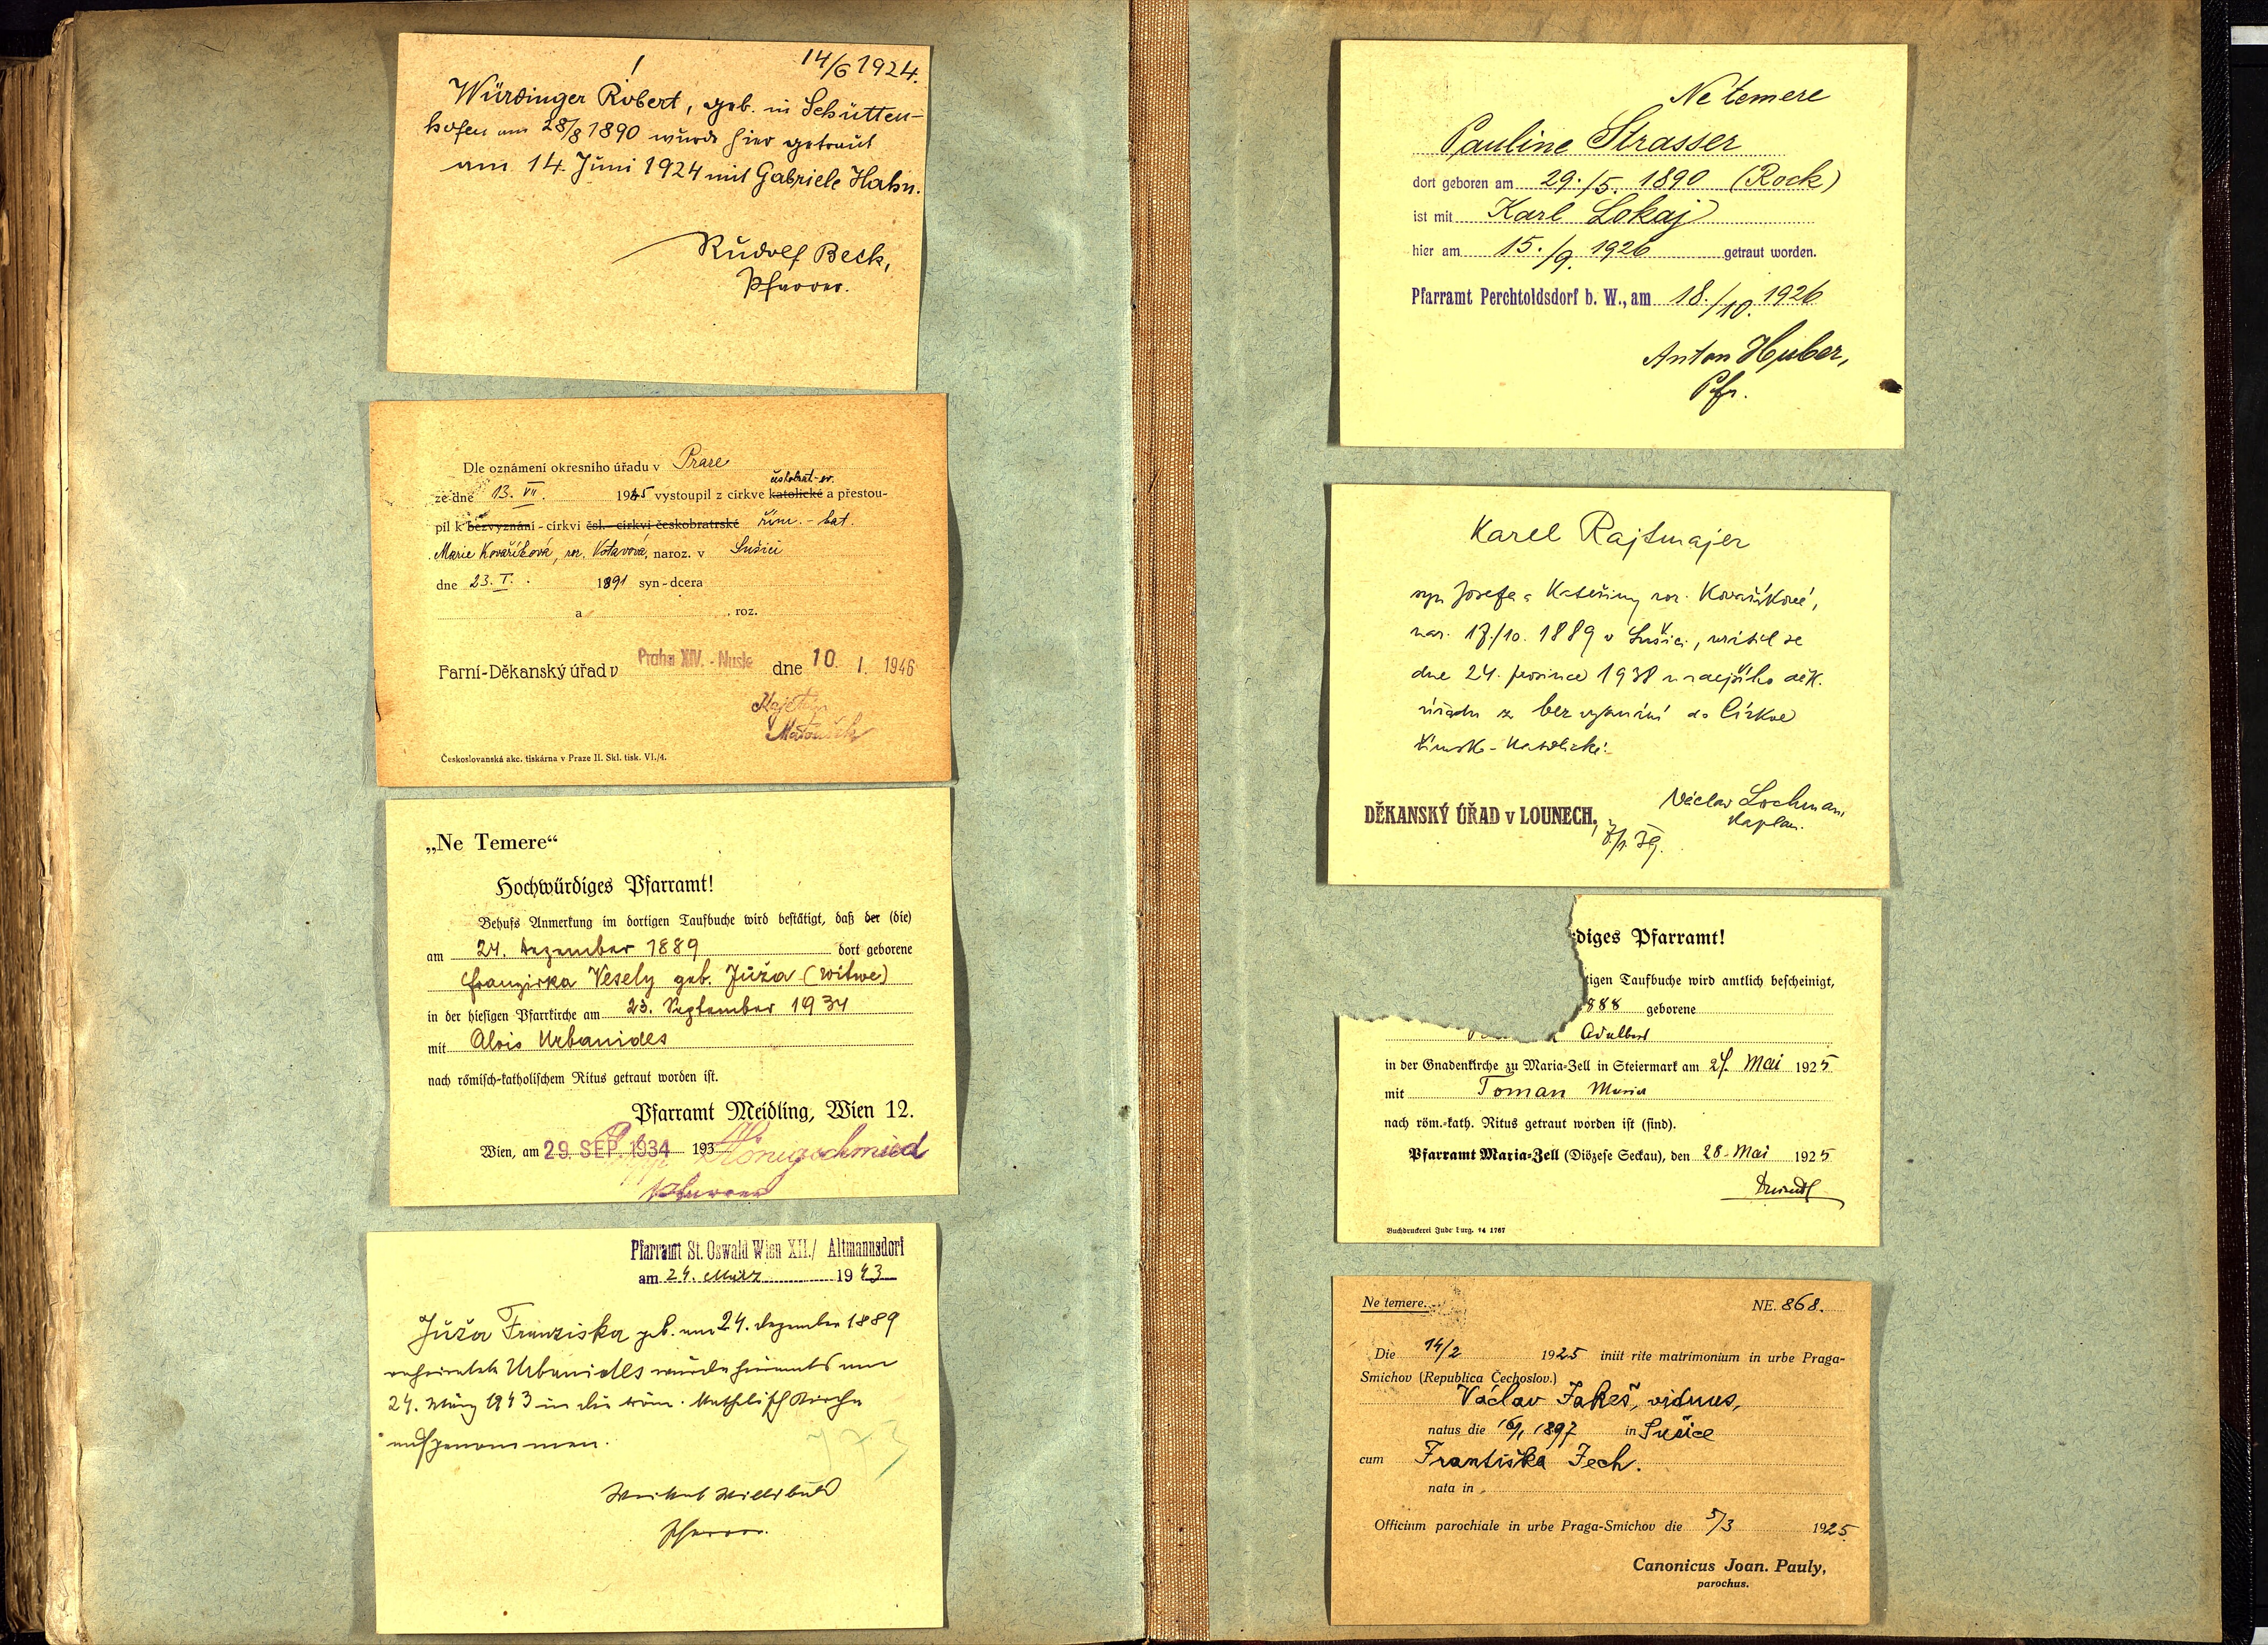 14/6 1924.
Würdinger Robert, geb. in Schütten-
hofen am 28/8 1890 wurde hier getraut
am 14. Juni 1924 mit Gabriele Hahn.
Rudolf Beck,
Pfarrer.
Dle oznámení okresního úřadu v Praze
českobrat-ev.
ze dne 13. VII. 1945 vystoupil z církve katolické a přestou-
pil k bezvyznání - církvi čsl. - církvi českobratrské řím. - kat.
Marie Kovaříková, roz. Votavová, naroz. v Sušici
dne 23. I. 1891 syn - dcera
a , roz.
Farní-Děkanský úřad v Praha XIV. - Nusle dne 10. I. 1946
Matoušek
Československá akc. tiskárna v Praze II. Skl. tisk. VI./4.
„Ne Temere“
Hochwürdiges Pfarramt!
Behufs Anmerkung im dortigen Taufbuche wird bestätigt, daß der (die)
am 24. Dezember 1889 dort geborene
Franziska Vesely geb. Jůža (Witwe)
in der hiesigen Pfarrkirche am 23. September 1934
mit Alois Urbanides
nach römisch-katholischem Ritus getraut worden ist.
Pfarramt Meidling, Wien 12.
Wien, am 29. SEP. 1934 193 Königschmied
Pfarrer
Pfarramt St. Oswald Wien XII./ Altmannsdorf
am 24. März 1943
Jůža Franziska geb. am 24. Dezember 1889
verheiratete Urbanides wurde hieramts am
24. März 1943 in die röm. katholisch Kirche
aufgenommen.
773
Willibald
Pfarrer.
Ne temere
Pauline Strasser
dort geboren am 29./5. 1890 (Rock)
ist mit Karl Lokaj
hier am 15./9. 1926 getraut worden.
Pfarramt Perchtoldsdorf b. W., am 18./10. 1926
Anton Huber,
Pfr.
Karel Rajtmajer
syn Josefa a Kateřiny roz. Kovaříkové,
nar. 17./10. 1889 v Sušici, vrátil se
dne 24. prosince 1938 u zdejšího děk.
úřadu z bez vyznání do Církve
římsko-katolické.
DĚKANSKÝ ÚŘAD v LOUNECH, 7/1. 39.
Václav Lochman,
kaplan.
diges Pfarramt!
tigen Taufbuche wird amtlich bescheinigt,
888 geborene
Adalbert
in der Gnadenkirche zu Maria-Zell in Steiermark am 27. Mai 1925
mit Toman Maria
nach röm.-kath. Ritus getraut worden ist (sind).
Pfarramt Maria-Zell (Diözese Seckau), den 28. Mai 1925
Buchdruckerei Judenburg. 24 1767
Ne temere. NE. 868.
Die 14/2 1925 iniit rite matrimonium in urbe Praga-
Smichov (Republica Čechoslov.)
Václav Jakeš, viduus,
natus die 16/1 1897 in Sušice
cum Františka Jech.
nata in
Officium parochiale in urbe Praga-Smichov die 5/3 1925
Canonicus Joan. Pauly,
parochus.